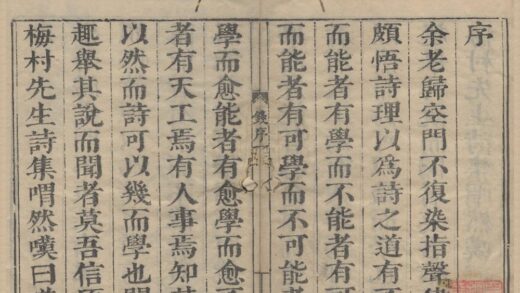 序
余老歸空門不復染指聲
頗悟詩理以爲詩之道有
而能者有學而不能者有
而能者有可學而不可
錢序
學而愈能者有愈學而愈
者有天工焉有人事焉知其
以然而詩可以幾而學也
趣舉其說而聞者莫吾信
梅村先生詩集喟然嘆曰